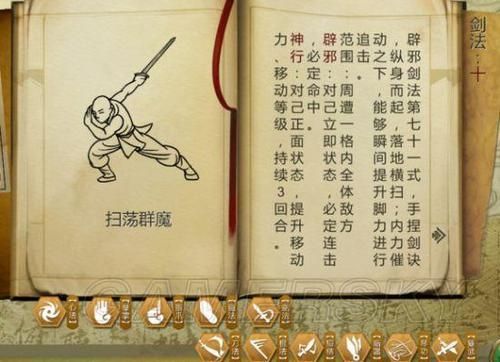 剑法：十
辟邪剑法第十一式，手捏剑诀
，纵身而起，七地横扫；内力催
动之下，能够瞬间提升脚力进行
追击。
范围：周遭一格内全体敌方
辟邪：对己立即状态，必定连击
，必定命中。
神行：对己正面状态，提升移动
力、移动等级，持续3回合。
扫荡群魔
GAMERSKY